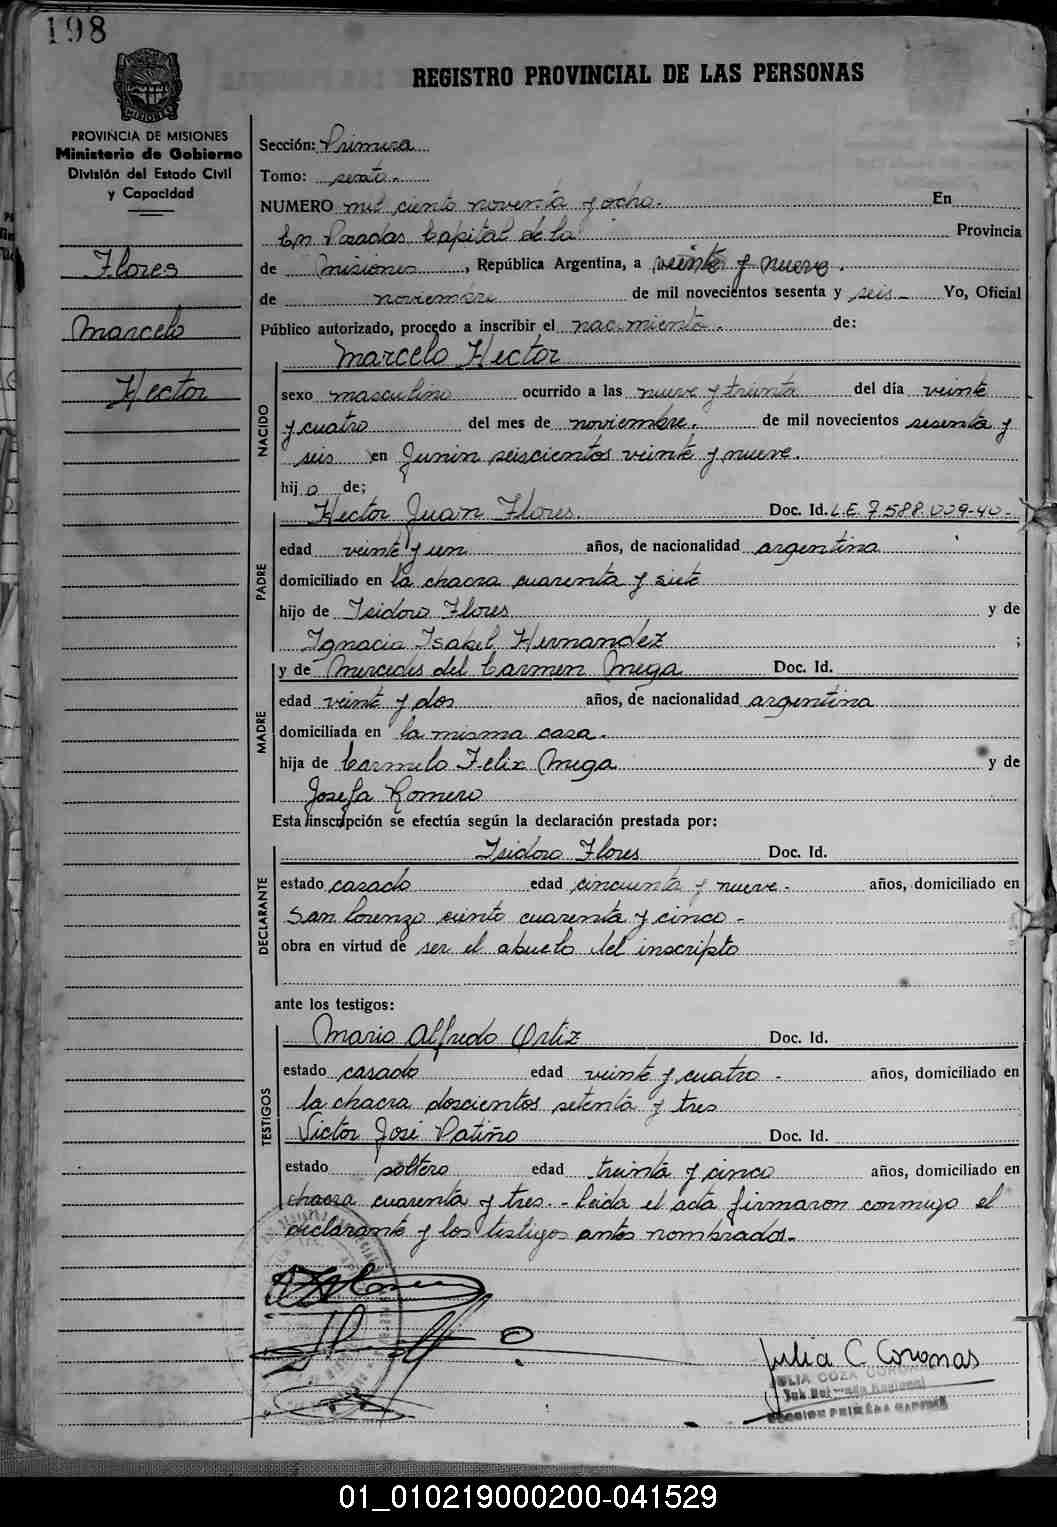 198
REGISTRO PROVINCIAL DE LAS PERSONAS
PROVINCIA DE MISIONES
Ministerio de Gobierno
División del Estado Civil
y Capacidad
Flores
Marcelo
Hector
Sección: Primera
Tomo: sexto.
NUMERO mil ciento noventa y ocho. En
En Posadas Capital de la Provincia
de Misiones, República Argentina, a veinte y nueve.
de noviembre de mil novecientos sesenta y seis Yo, Oficial
Público autorizado, procedo a inscribir el nacimiento. de:
NACIDO
Marcelo Hector
sexo masculino ocurrido a las nueve y treinta del día veinte
y cuatro del mes de noviembre. de mil novecientos sesenta y
seis en Junin seiscientos veinte y nueve.
hijo de;
PADRE
Hector Juan Flores. Doc. Id. L.E. 7.588.009-40-
edad veinte y un años, de nacionalidad argentina
domiciliado en la chacra cuarenta y siete
hijo de Isidoro Flores y de
Ignacia Isabel Hernandez ;
MADRE
y de Mercedes del Carmen Mega Doc. Id.
edad veinte y dos años, de nacionalidad argentina
domiciliada en la misma casa.
hija de Carmelo Felix Mega y de
Josefa Romero
Esta inscripción se efectúa según la declaración prestada por:
DECLARANTE
Isidoro Flores Doc. Id.
estado casado edad cincuenta y nueve- años, domiciliado en
San Lorenzo ciento cuarenta y cinco-
obra en virtud de ser el abuelo del inscripto
ante los testigos:
TESTIGOS
Mario Alfredo Ortiz Doc. Id.
estado casado edad veinte y cuatro- años, domiciliado en
la chacra doscientos setenta y tres
Victor José Patiño Doc. Id.
estado soltero edad treinta y cinco años, domiciliado en
chacra cuarenta y tres.- Leida el acta firmaron conmigo el
declarante y los testigos antes nombrados.-
Julia C. Coronas
JULIA COZA
SECCION PRIMERA CAPITAL
01_010219000200-041529